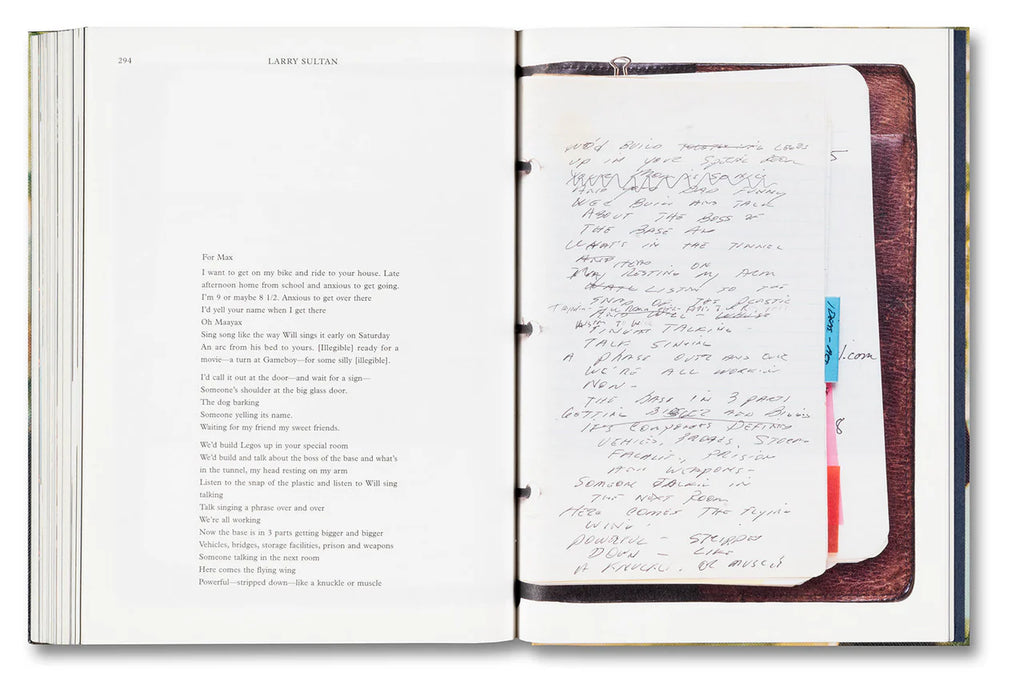 294
LARRY SULTAN
For Max
I want to get on my bike and ride to your house. Late
afternoon home from school and anxious to get going.
I'm 9 or maybe 8 1/2. Anxious to get over there
I'd yell your name when I get there
Oh Maayax
Sing song like the way Will sings it early on Saturday
An arc from his bed to yours. [Illegible] ready for a
movie—a turn at Gameboy—for some silly [illegible].
I'd call it out at the door—and wait for a sign—
Someone's shoulder at the big glass door.
The dog barking
Someone yelling its name.
Waiting for my friend my sweet friends.
We'd build Legos up in your special room
We'd build and talk about the boss of the base and what's
in the tunnel, my head resting on my arm
Listen to the snap of the plastic and listen to Will sing
talking
Talk singing a phrase over and over
We're all working
Now the base is in 3 parts getting bigger and bigger
Vehicles, bridges, storage facilities, prison and weapons
Someone talking in the next room
Here comes the flying wing
Powerful—stripped down—like a knuckle or muscle
WE'D BUILD LEGOS
UP IN YOUR SPECIAL ROOM
AND BAD FUNNY
WE'D BUILD AND TALK
ABOUT THE BOSS OF
THE BASE AND
WHAT'S IN THE TUNNEL
MY RESTING ON MY ARM
LISTEN TO THE
SNAP OF THE PLASTIC
TALKING -
TALK SINGING
A PHRASE OVER AND OVER
WE'RE ALL WORKING
NOW -
THE BASE IN 3 PARTS
GETTING BIGGER AND BIGGER
VEHICLES, BRIDGES, STORAGE
FACILITIES, PRISON
AND WEAPONS -
SOMEONE TALKING IN
THE NEXT ROOM
HERE COMES THE FLYING
WING
POWERFUL - STRIPPED
DOWN - LIKE
A KNUCKLE OR MUSCLE
5
1.com
8